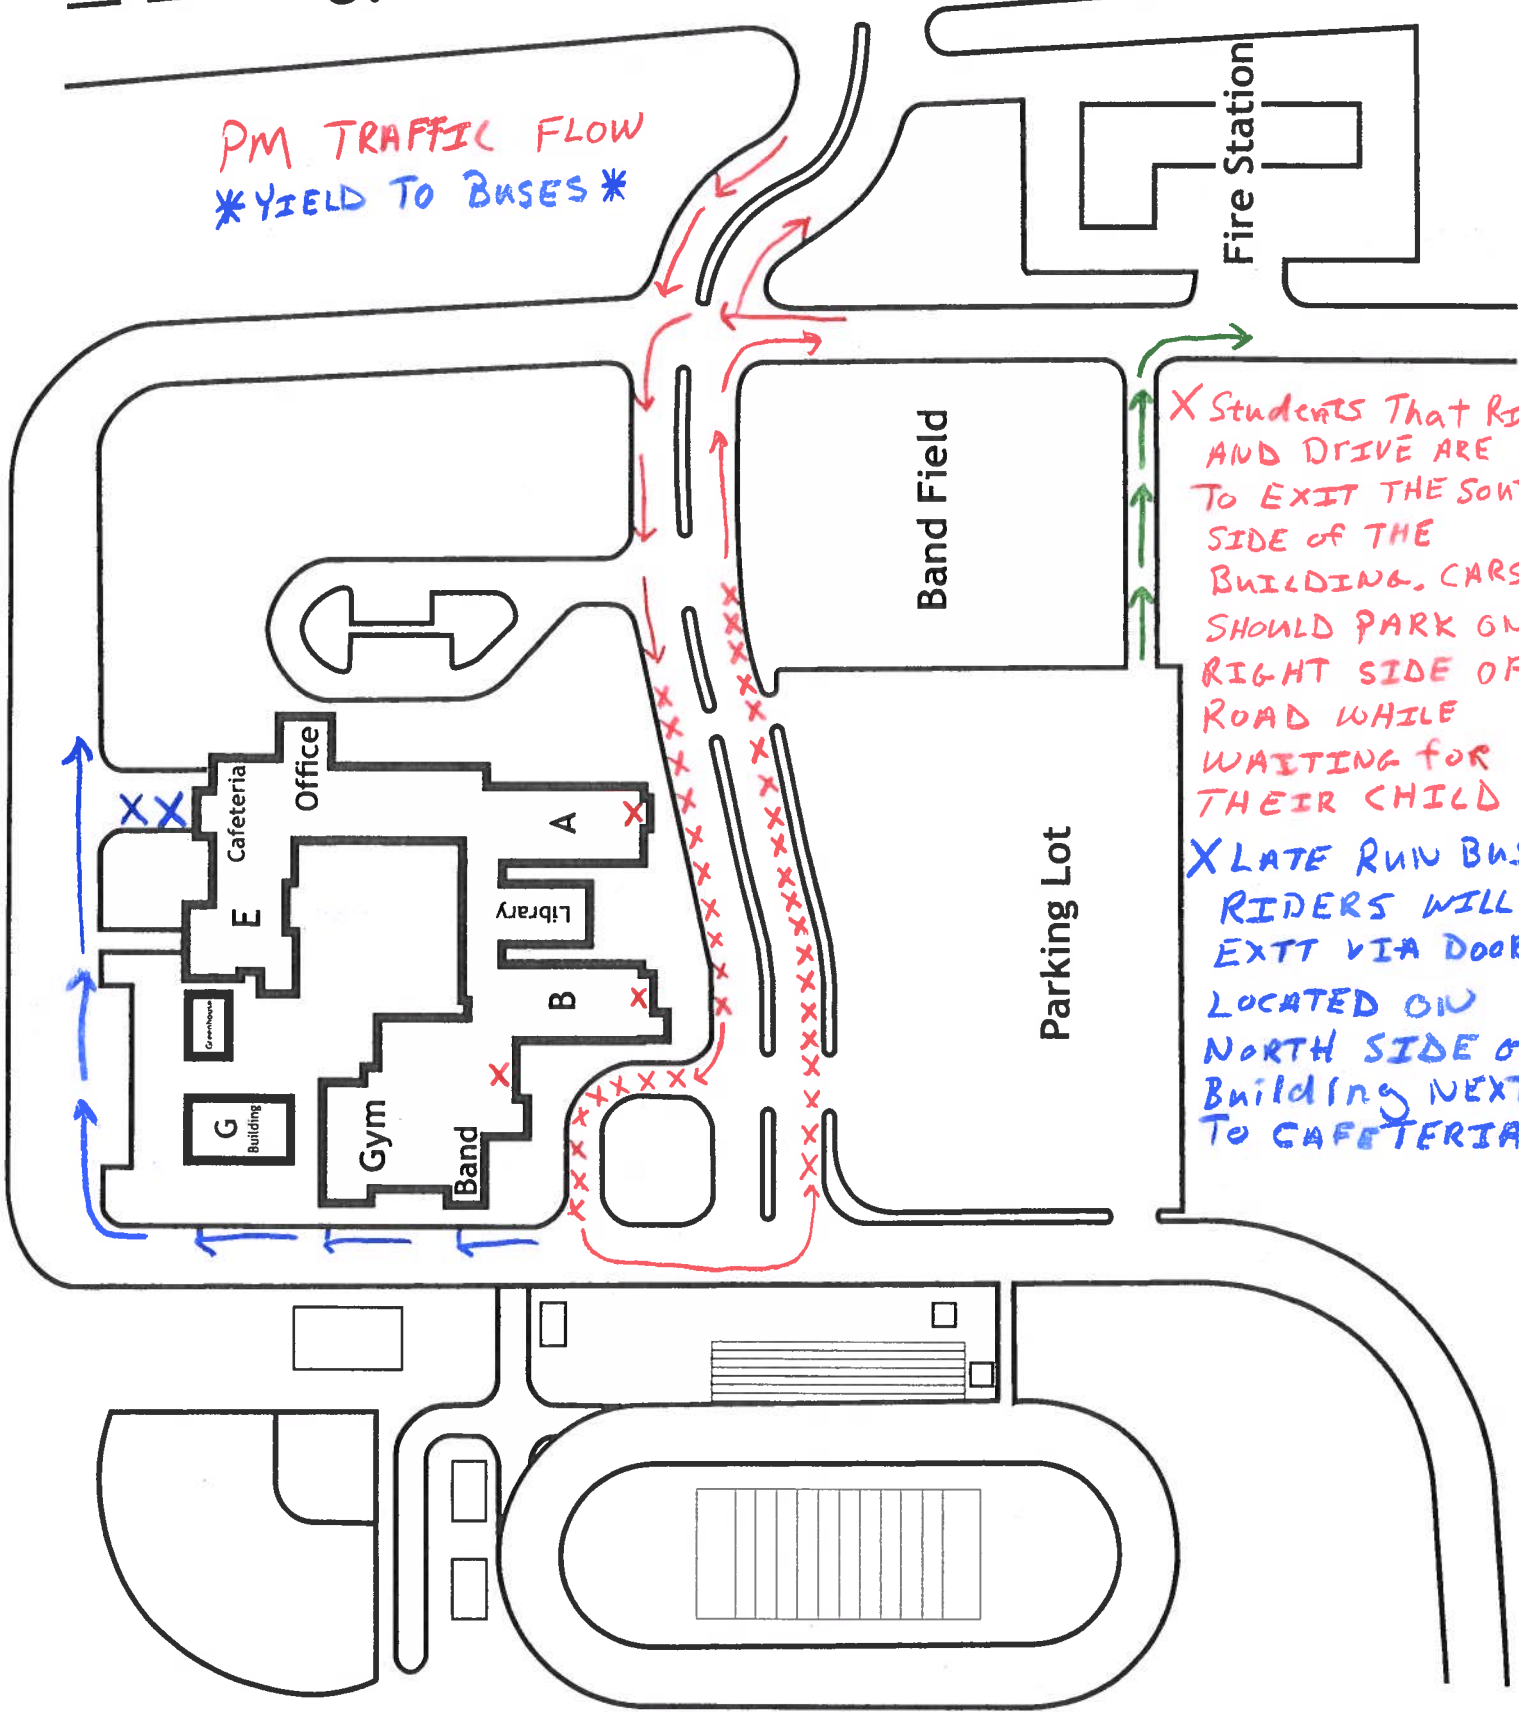 PM TRAFFIC FLOW
*YIELD TO BUSES*
Fire Station
Band Field
Parking Lot
Office
Cafeteria
E
A
Library
B
Greenhouse
G
Building
Gym
Band
X Students That
AND DrIVE ARE
TO EXIT THE
SIDE of THE
BUILDING. CARS
SHOULD PARK
RIGHT SIDE
ROAD WHILE
WAITING foR
THEIR CHILD
X LATE RUN
RIDERS WILL
EXIT VIA
LOCATED ON
NORTH SIDE
BuildIng
To CAFETERIA